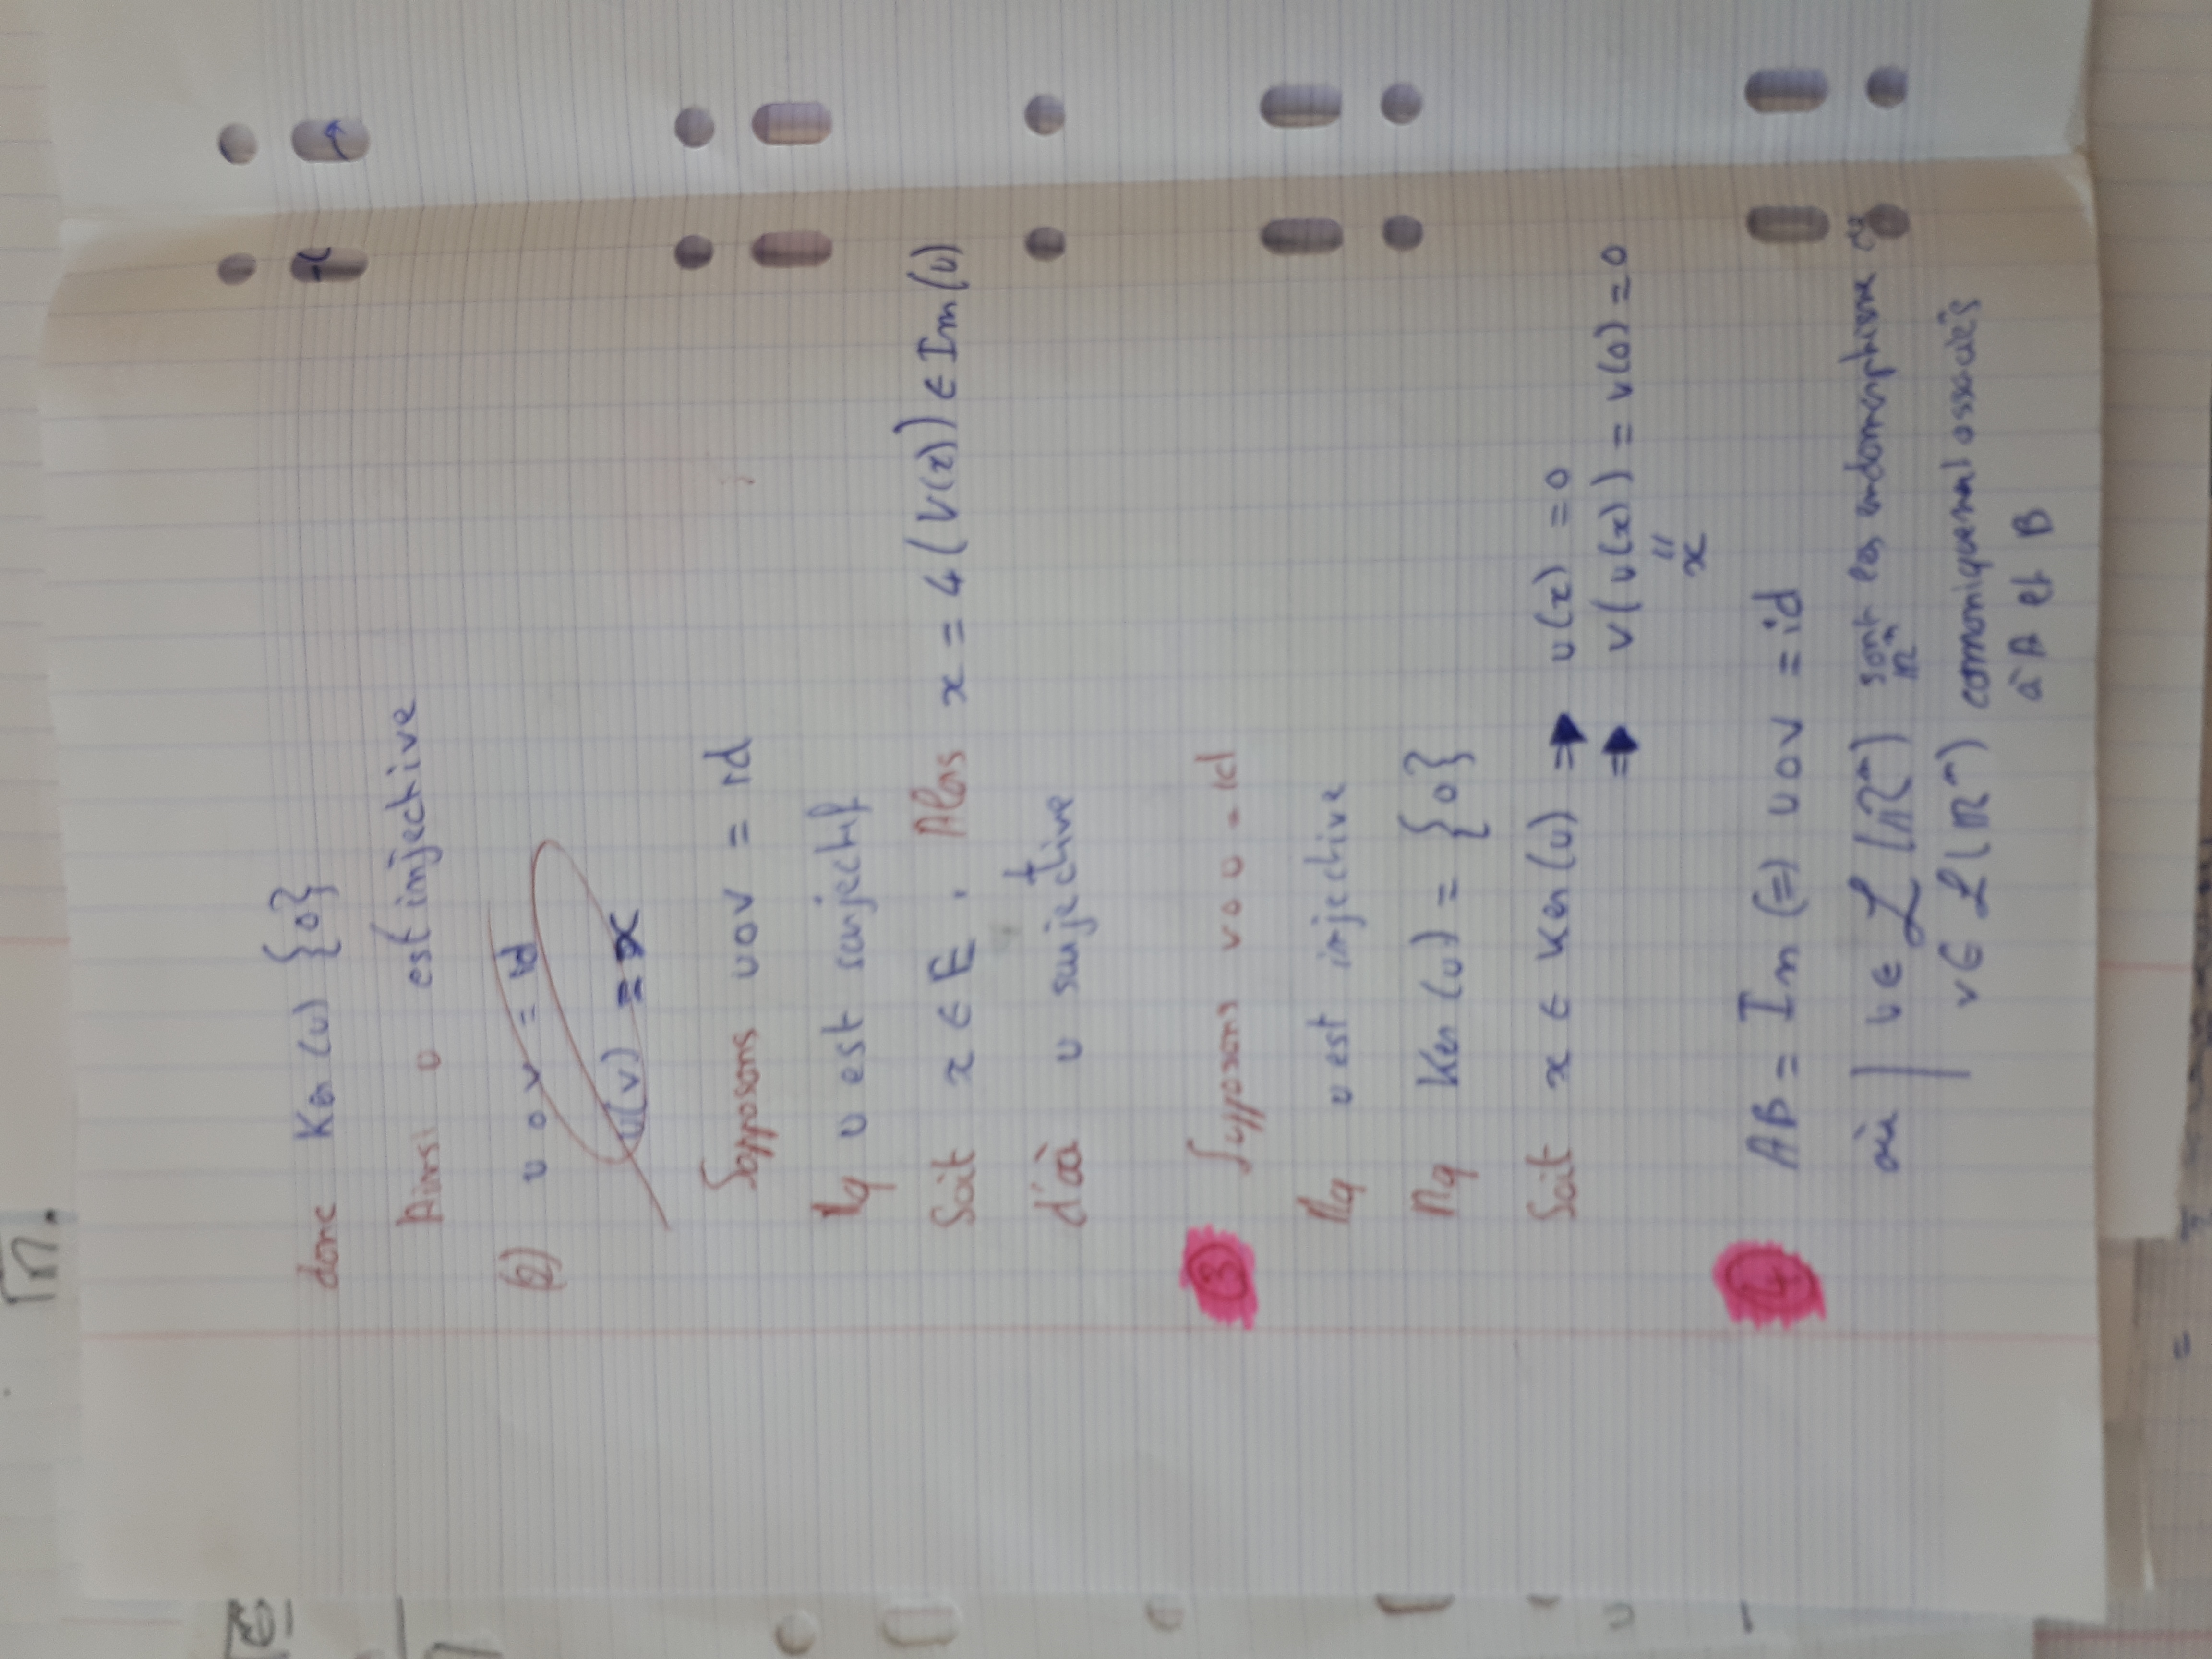 donc Ker(u) {0}
Ainsi u est injective
(2) u o v = id
u(v) = x
Supposons u o v = id
Mq u est surjectif
Soit x ∈ E. Alors x = u(v(x)) ∈ Im(u)
d'où u surjective
③ Supposons v o u = id
Mq u est injective
Mq Ker(u) = {0}
Soit x ∈ Ker(u) ⇒ u(x) = 0
⇒ v(u(x)) = v(0) = 0
"
x
④ AB = In (=) u o v = id
où | u ∈ L(ℝⁿ) sont les endomorphisme de ℝⁿ
v ∈ L(ℝⁿ) canoniquement associés
à A et B